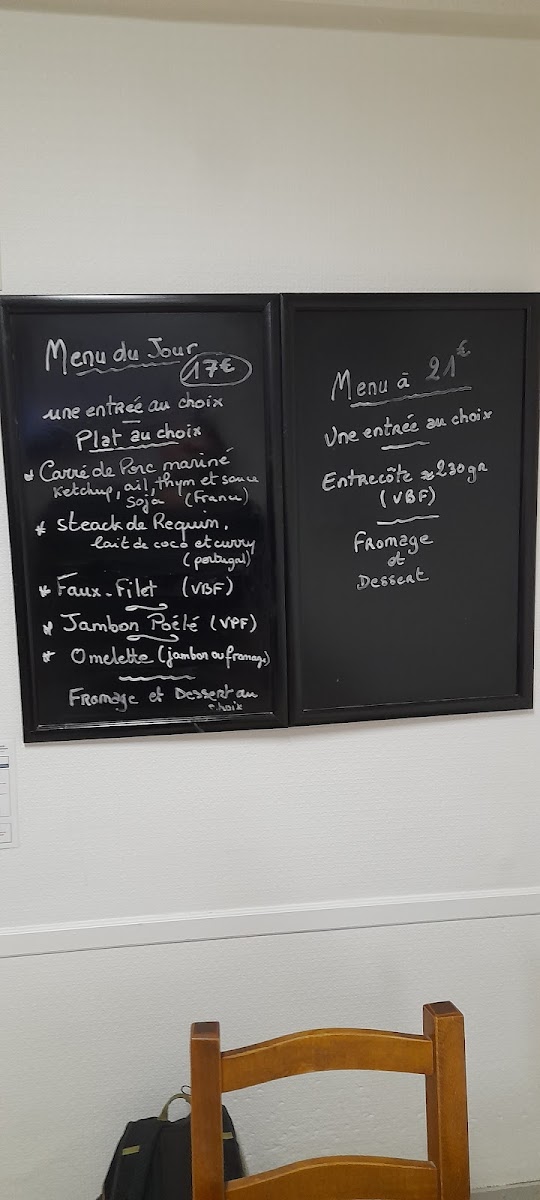 Menu du Jour
17€
une entrée au choix
Plat au choix
* Carré de Porc mariné
Ketchup, ail, thym et sauce
Soja (France)
* Steack de Requin,
lait de coco et curry
(portugal)
* Faux-Filet (VBF)
* Jambon Poélé (VPF)
* Omelette (jambon ou fromage)
Fromage et Dessert au
choix
Menu à 21€
Une entrée au choix
Entrecôte ≈230gr
(VBF)
Fromage
et
Dessert